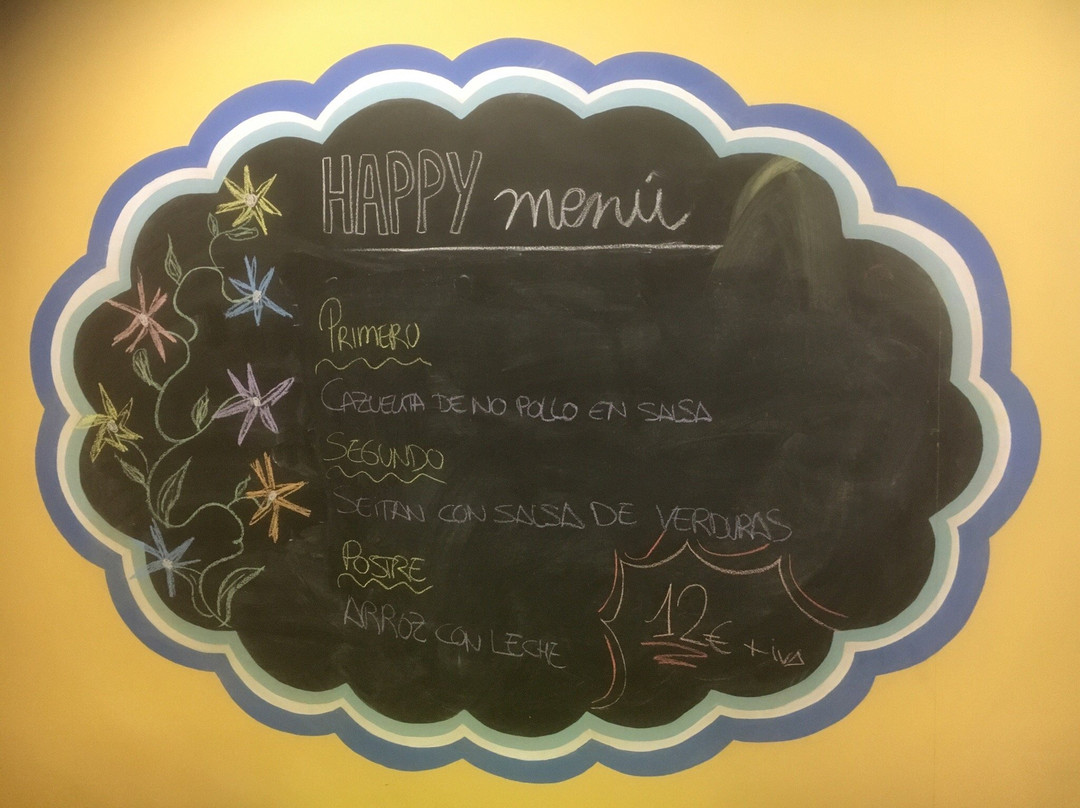 HAPPY menú
PRIMERO
CAZUELITA DE NO POLLO EN SALSA
SEGUNDO
SEITAN CON SALSA DE VERDURAS
POSTRE
ARROZ CON LECHE
12€ + iva